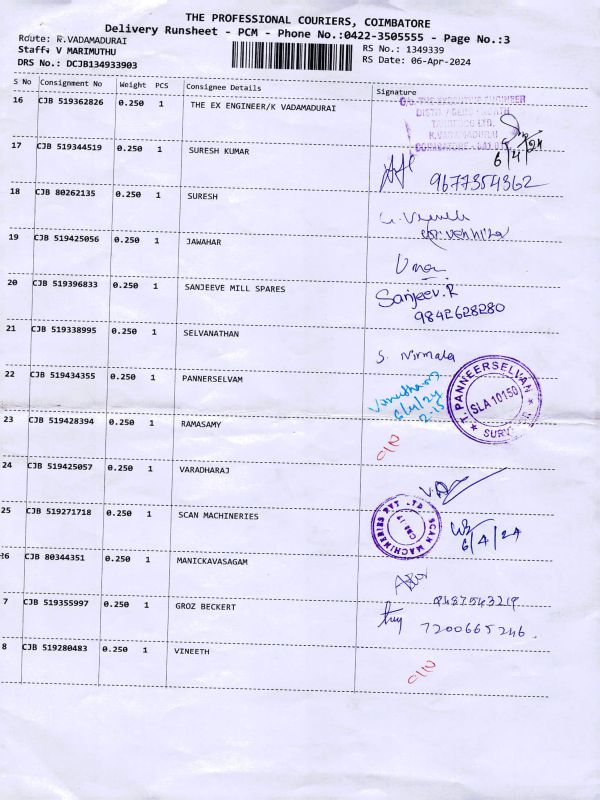 THE PROFESSIONAL COURIERS, COIMBATORE
Delivery Runsheet - PCM - Phone No.:0422-3505555 - Page No.:3
Route: R.VADAMADURAI
Staff: V MARIMUTHU
RS No.: 1349339
DRS No.: DCJB134933903
RS Date: 06-Apr-2024
S No Consignment No Weight PCS Consignee Details Signature
16 CJB 519362826 0.250 1 THE EX ENGINEER/K VADAMADURAI
TANGEDCO LTD.
K.VADAMADURAI
6/4/24
17 CJB 519344519 0.250 1 SURESH KUMAR
9677354362
18 CJB 80262135 0.250 1 SURESH
19 CJB 519425056 0.250 1 JAWAHAR
Uma
20 CJB 519396833 0.250 1 SANJEEVE MILL SPARES
Sanjeev.R
9842628280
21 CJB 519338995 0.250 1 SELVANATHAN
S. Nirmala
22 CJB 519434355 0.250 1 PANNERSELVAM
6/4/24
2.15
T. PANNEERSELVAN
SLA 10150
23 CJB 519428394 0.250 1 RAMASAMY
C/N
24 CJB 519425057 0.250 1 VARADHARAJ
25 CJB 519271718 0.250 1 SCAN MACHINERIES
SCAN MACHINERIES PVT. LTD
CBE-17
6/4/24
26 CJB 80344351 1 MANICKAVASAGAM
7 CJB 519355997 0.250 1 GROZ BECKERT
9487543219
7200665246.
8 CJB 519280483 0.250 1 VINEETH
C/N